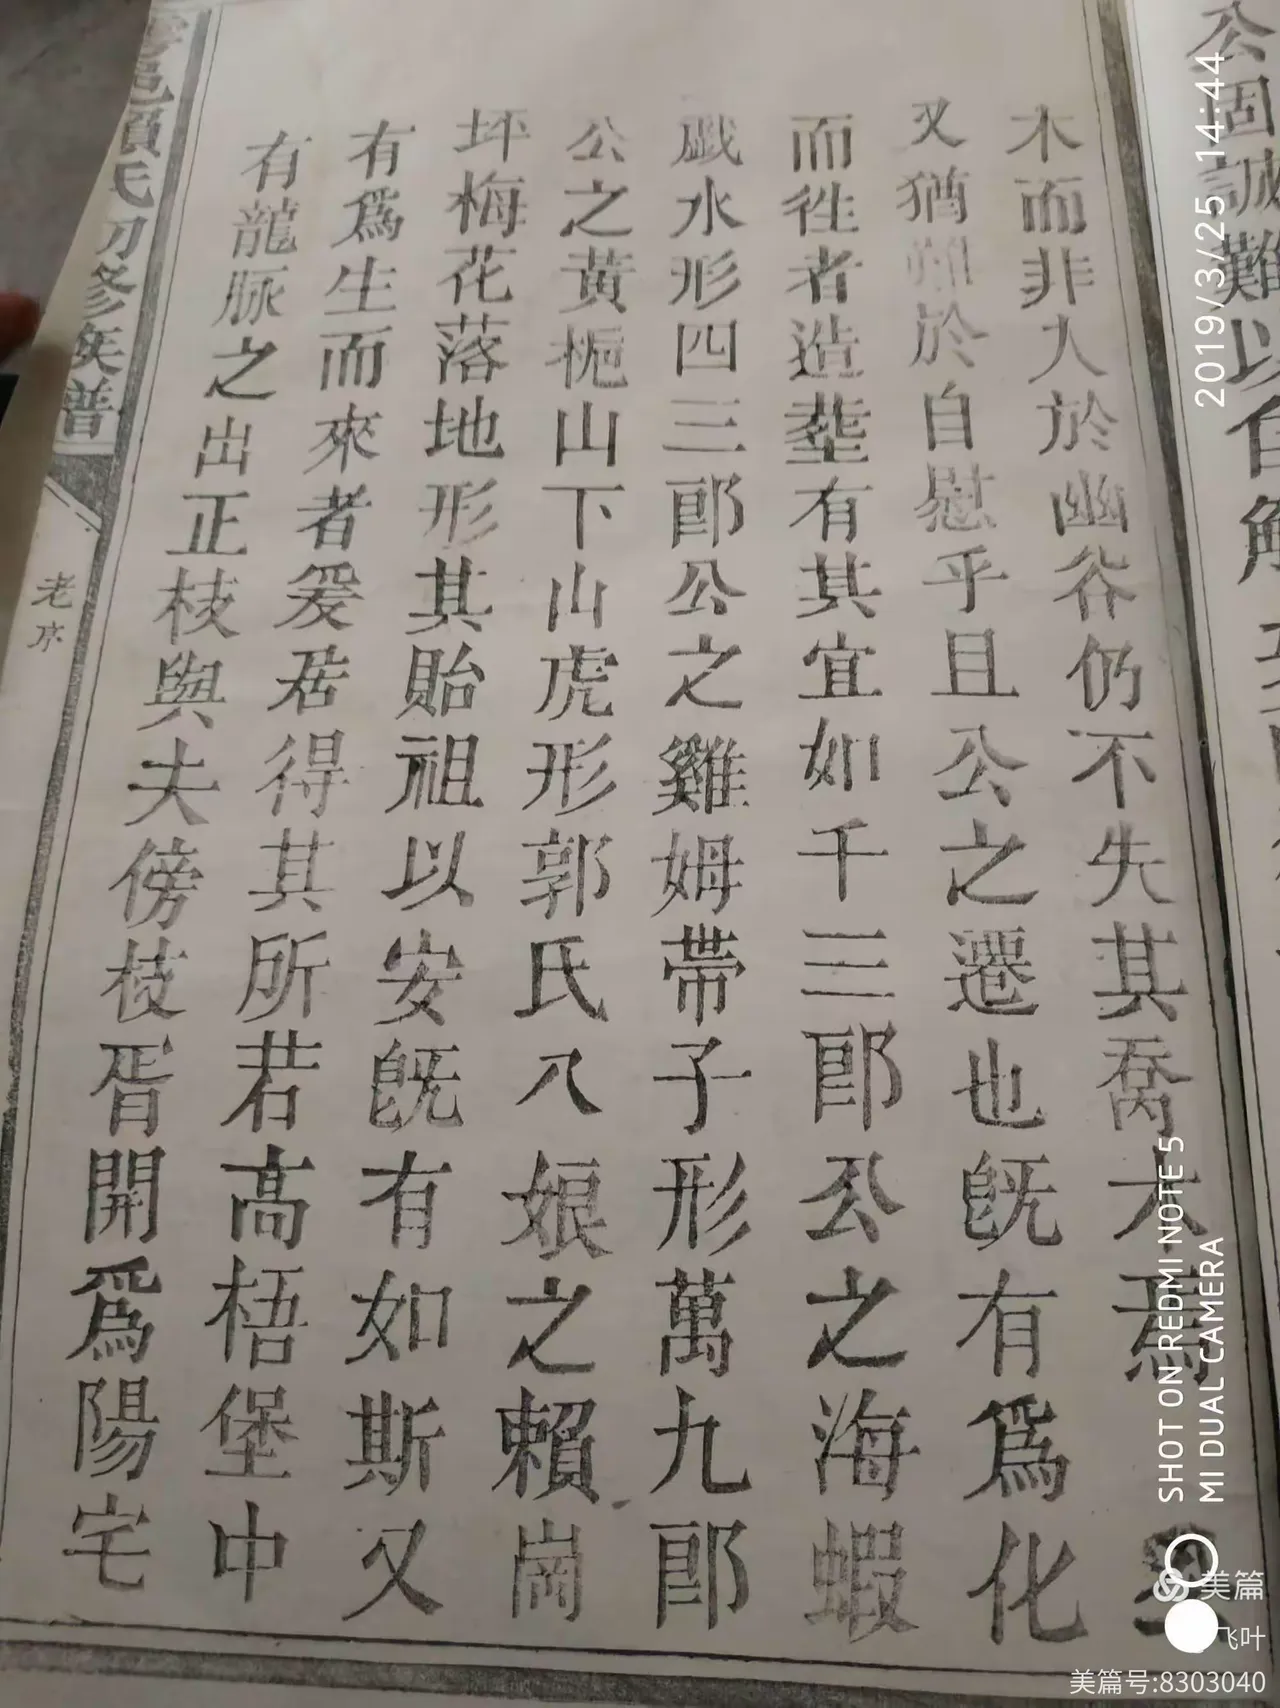 公固誠難以自解
木而非人於幽谷仍不失其喬木焉
又猶於自慰乎且公之遷也旣有爲化
而徃者造塟有其宜如千三郎公之海蝦
戯水形四三郎公之雞姆帶子形萬九郎
公之黃栀山下山虎形郭氏八娘之賴崗
坪梅花落地形其貽祖以安旣有如斯又
有爲生而來者爰居得其所若高梧堡中
有龍脉之出正枝與夫傍枝胥開爲陽宅
邑賴氏初修族譜
老序
2019/3/25 14:44
SHOT ON REDMI NOTE 5
MI DUAL CAMERA
美篇
飞叶
美篇号:8303040